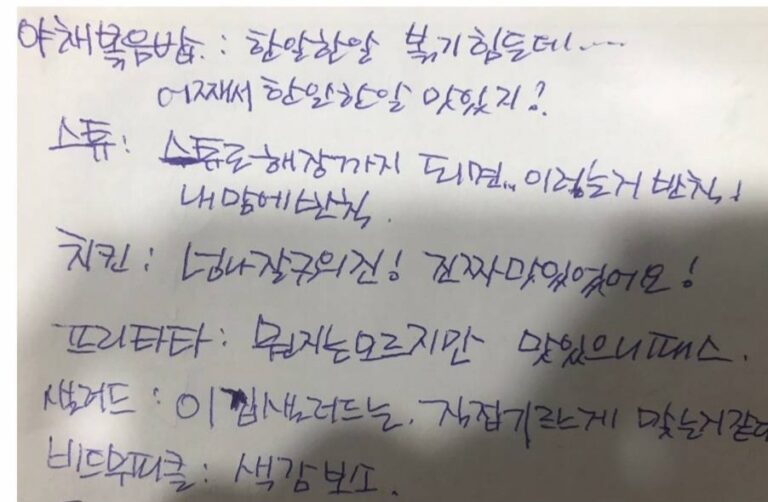 야채볶음밥 : 한알한알 볶기힘든데....
어째서 한알한알 맛있지?
스튜 : 스튜로해장까지 되면.. 이러는거 반칙!
내맘에반칙.
치킨 : 너나잘구의진! 진짜맛있었어요!
뜨리타타 : 뭔지는모르지만 맛있으니패스.
샐러드 : 이집샐러드는. 직접기르는게 맞는거같다
비드무피클 : 색감보소.